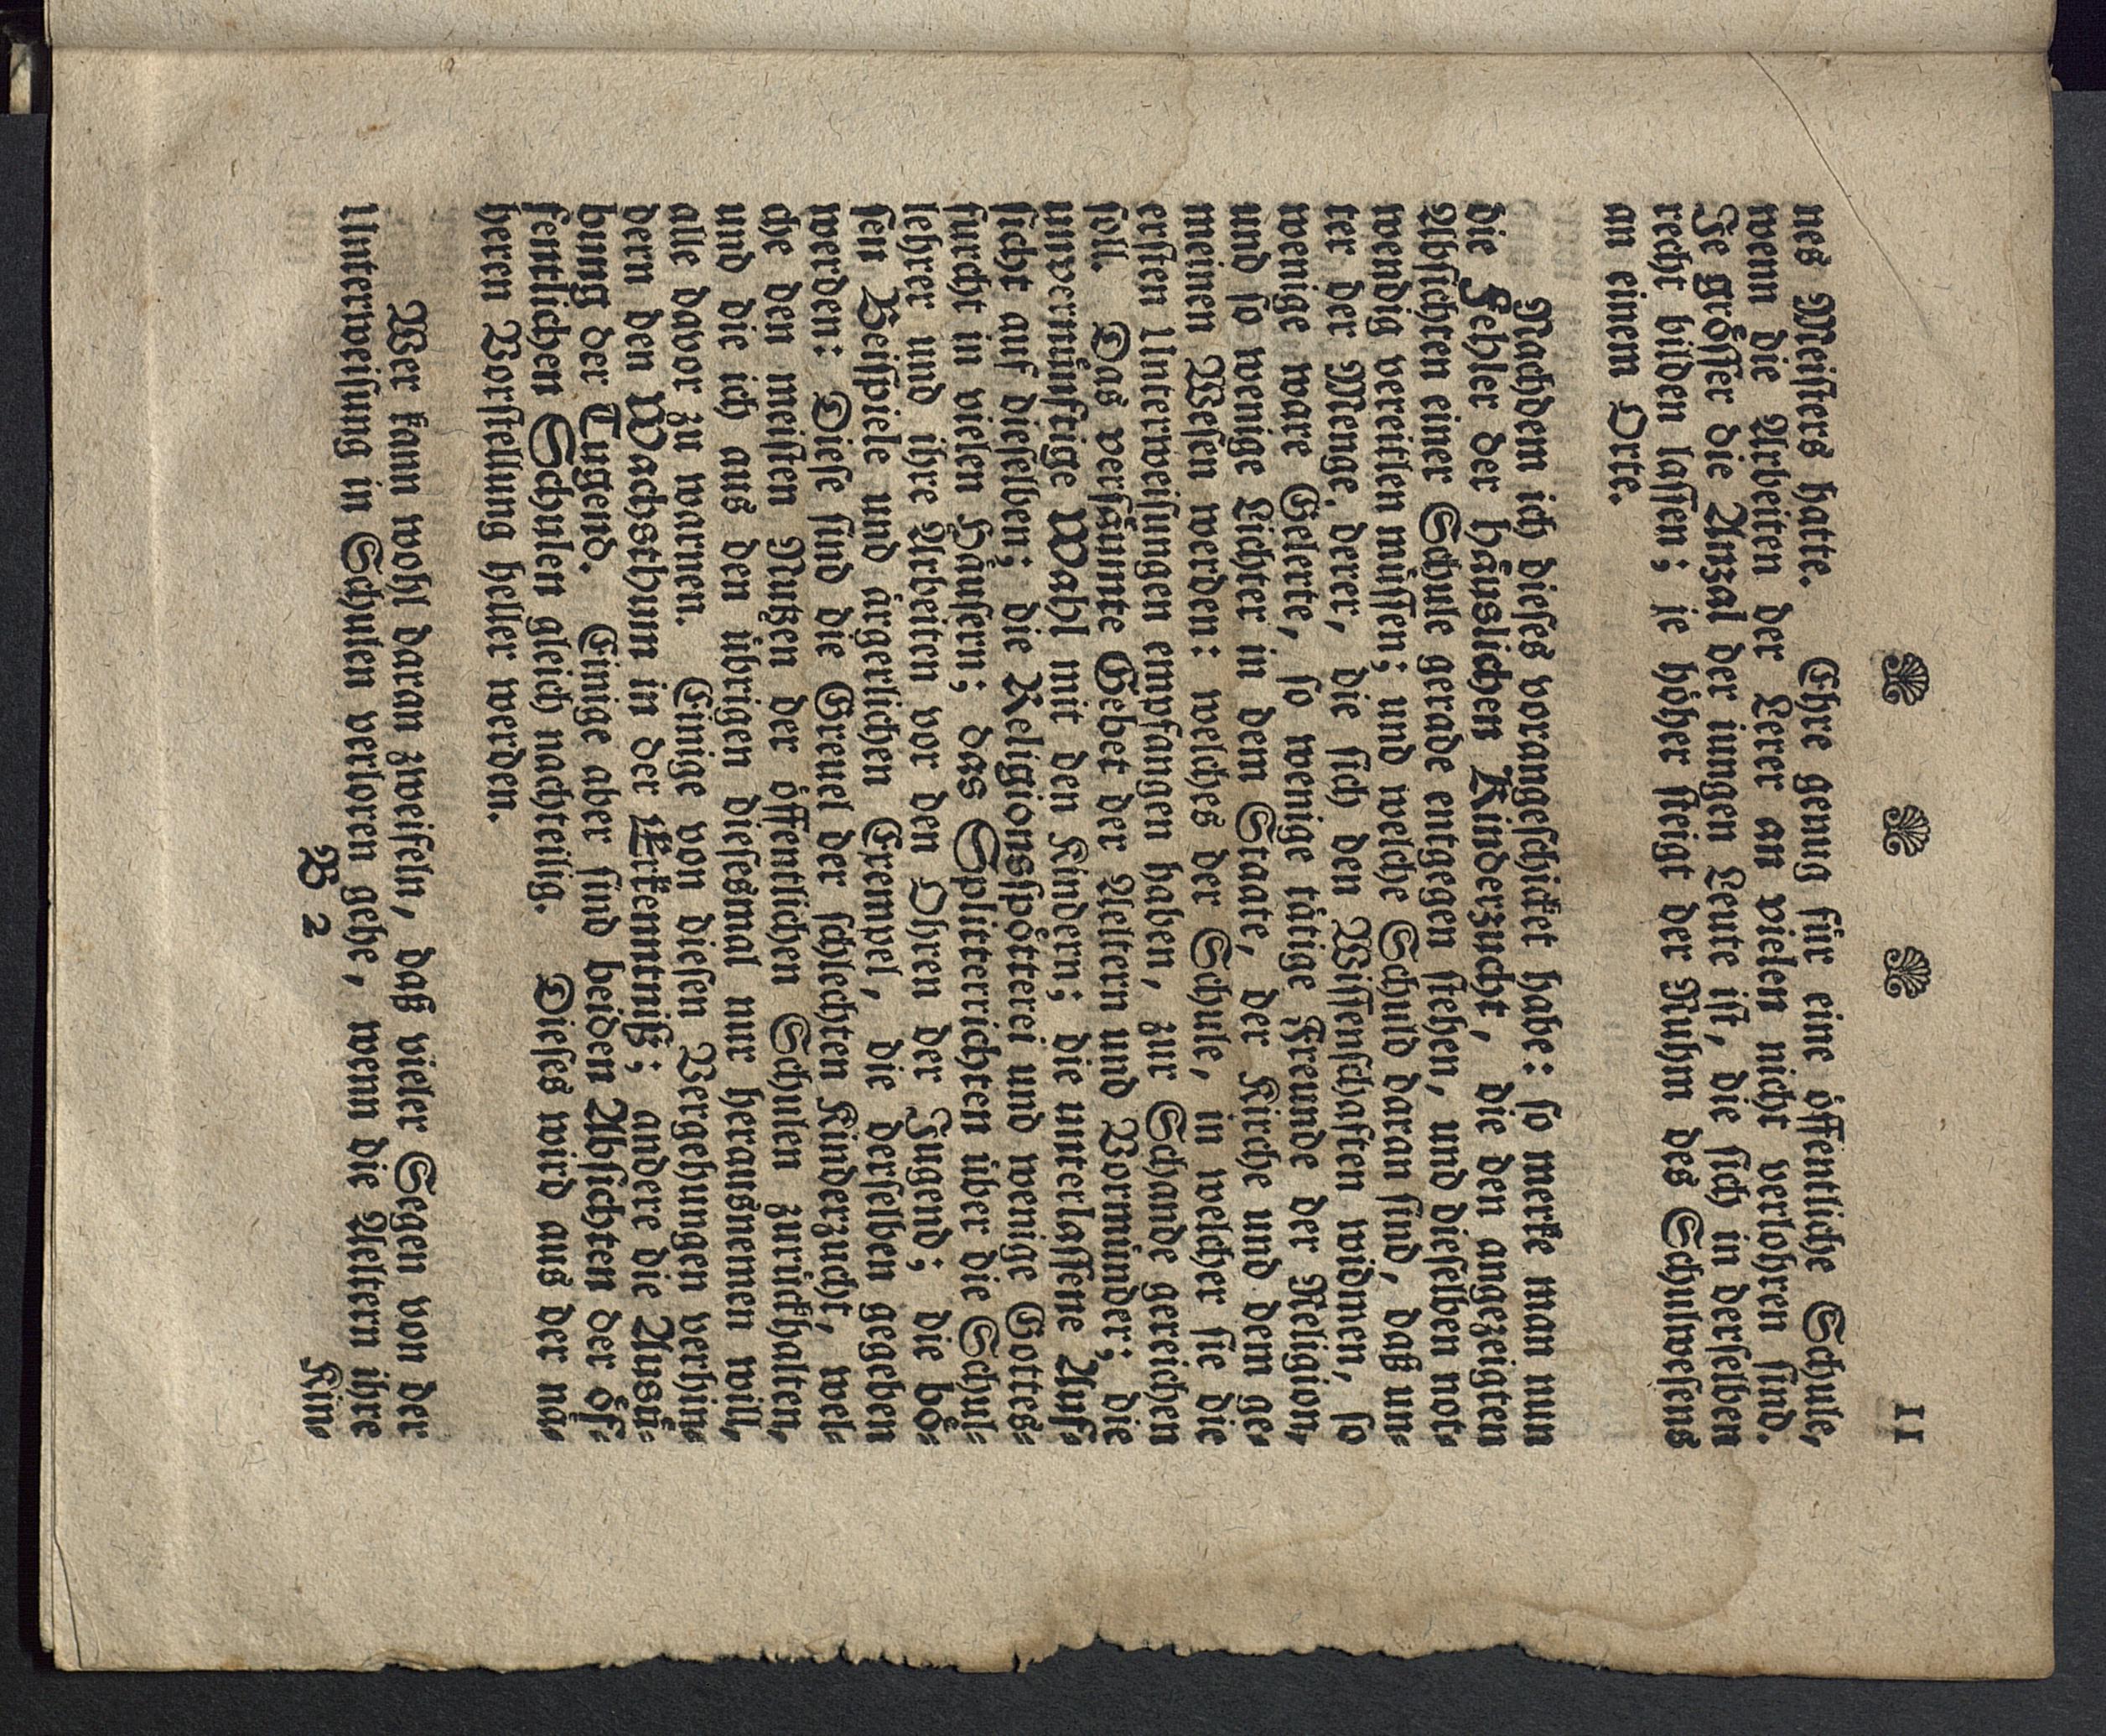 ❧ ❧ ❧ 11
nes Meiſters hatte. Ehre genug für eine öffentliche Schule,
wenn die Arbeiten der Lerer an vielen nicht verlohren ſind.
Je gröſſer die Anzal der iungen Leute iſt, die ſich in derſelben
recht bilden laſſen; ie höher ſteigt der Ruhm des Schulweſens
an einem Orte.
Nachdem ich dieſes vorangeſchicket habe: ſo merke man nun
die Fehler der häuslichen Kinderzucht, die den angezeigten
Abſichten einer Schule gerade entgegen ſtehen, und dieſelben not⸗
wendig vereitlen müſſen; und welche Schuld daran ſind, daß un⸗
ter der Menge, derer, die ſich den Wiſſenſchaften widmen, ſo
wenige ware Gelerte, ſo wenige tätige Freunde der Religion,
und ſo wenige Lichter in dem Staate, der Kirche und dem ge⸗
meinen Weſen werden: welches der Schule, in welcher ſie die
erſten Unterweiſungen empfangen haben, zur Schande gereichen
ſoll. Das verſäumte Gebet der Aeltern und Vormünder; die
unvernünftige Wahl mit den Kindern; die unterlaſſene Auf⸗
ſicht auf dieſelben; die Religionsſpötterei und wenige Gottes⸗
furcht in vielen Häuſern; das Splitterrichten über die Schul⸗
lehrer und ihre Arbeiten vor den Ohren der Jugend; die bö⸗
ſen Beiſpiele und ärgerlichen Exempel, die derſelben gegeben
werden: Dieſe ſind die Greuel der ſchlechten Kinderzucht, wel⸗
che den meiſten Nutzen der öffentlichen Schulen zurückhalten,
und die ich aus den übrigen dieſesmal nur herausnemen will,
alle davor zu warnen. Einige von dieſen Vergehungen verhin⸗
dern den Wachsthum in der Erkenntniß; andere die Ausü⸗
bung der Tugend. Einige aber ſind beiden Abſichten der öf⸗
fentlichen Schulen gleich nachteilig. Dieſes wird aus der nä⸗
heren Vorſtellung heller werden.
Wer kann wohl daran zweifeln, daß vieler Segen von der
Unterweiſung in Schulen verloren gehe, wenn die Aeltern ihre
B 2 Kin⸗